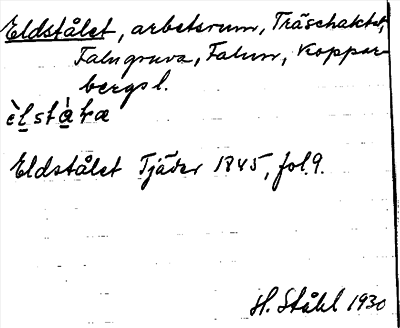 Eldstålet, arbetsrum, Träschaktet,
Falu gruva, Falun, Koppar-
bergs l.
èlstàlæ
Eldstålet Tjäder 1845, fol. 9.
H. Ståhl 1930